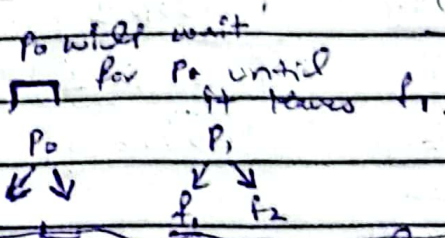 P0 will wait
for P1 until
it leaves f1
P0 P1
f1 f2